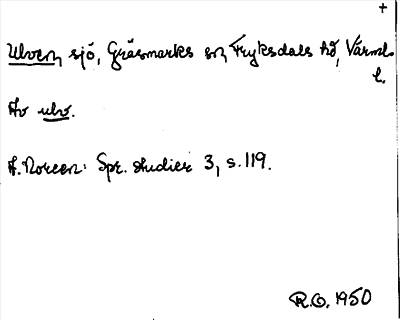 +
Ulven, sjö, Gräsmarks sn, Fryksdals hd, Värml.
l.
Av ulv.
A. Noreen: Spr. studier 3, s. 119.
R.O. 1950